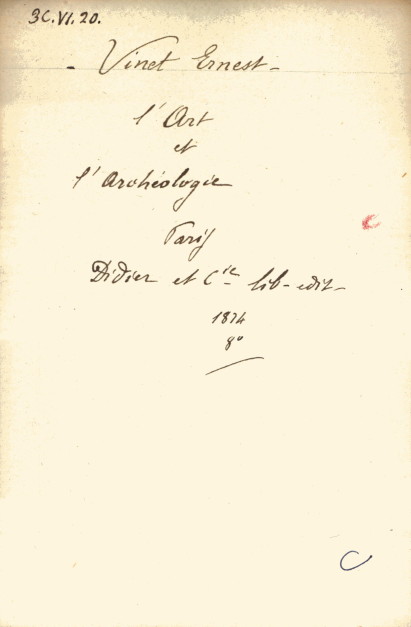 3C.VI.20.
- Vinet Ernest -
l'Art
et
l'Archéologie
Paris
Didier et Cie lib-edit-
1874
8º
C
C